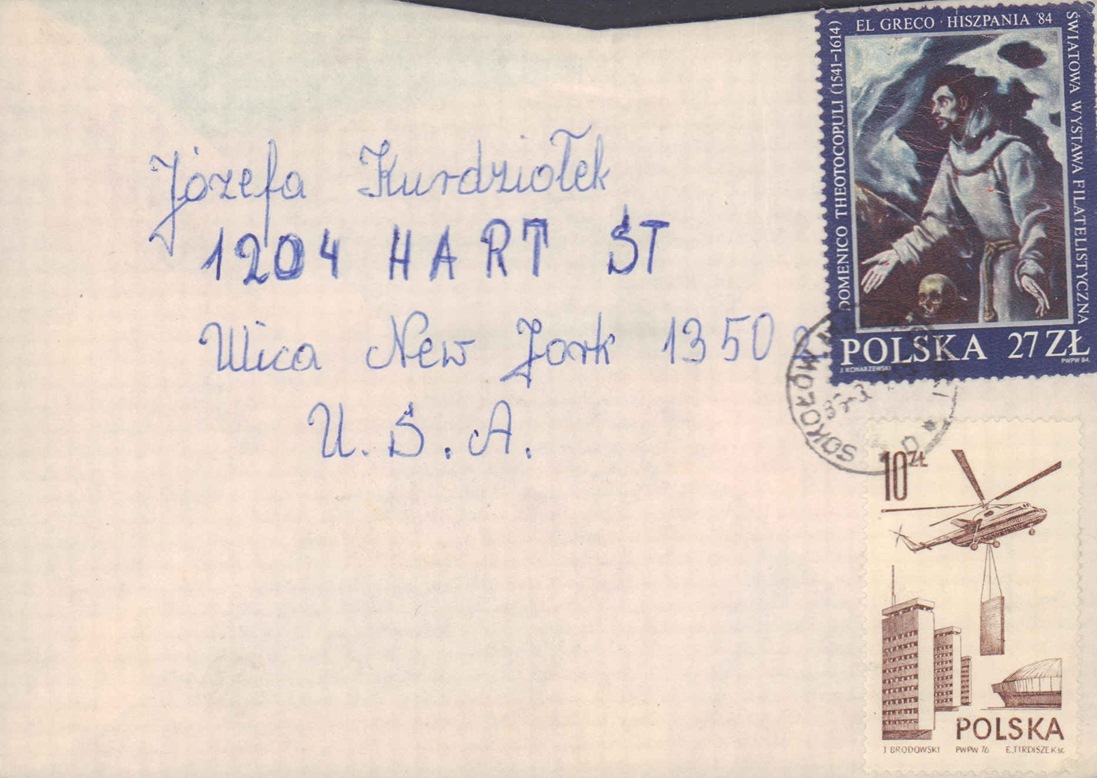 Józefa Kurdziołek
1204 HART ST
Utica New Jork 1350
U.S.A.
EL GRECO · HISZPANIA '84
DOMENICO THEOTOCOPULI (1541–1614)
ŚWIATOWA WYSTAWA FILATELISTYCZNA
POLSKA 27 ZŁ
J. KONARZEWSKI PWPW 84.
SOKOŁÓW M
10 ZŁ
POLSKA
J. BRODOWSKI PWPW 76 E. TIRDISZEK sc.